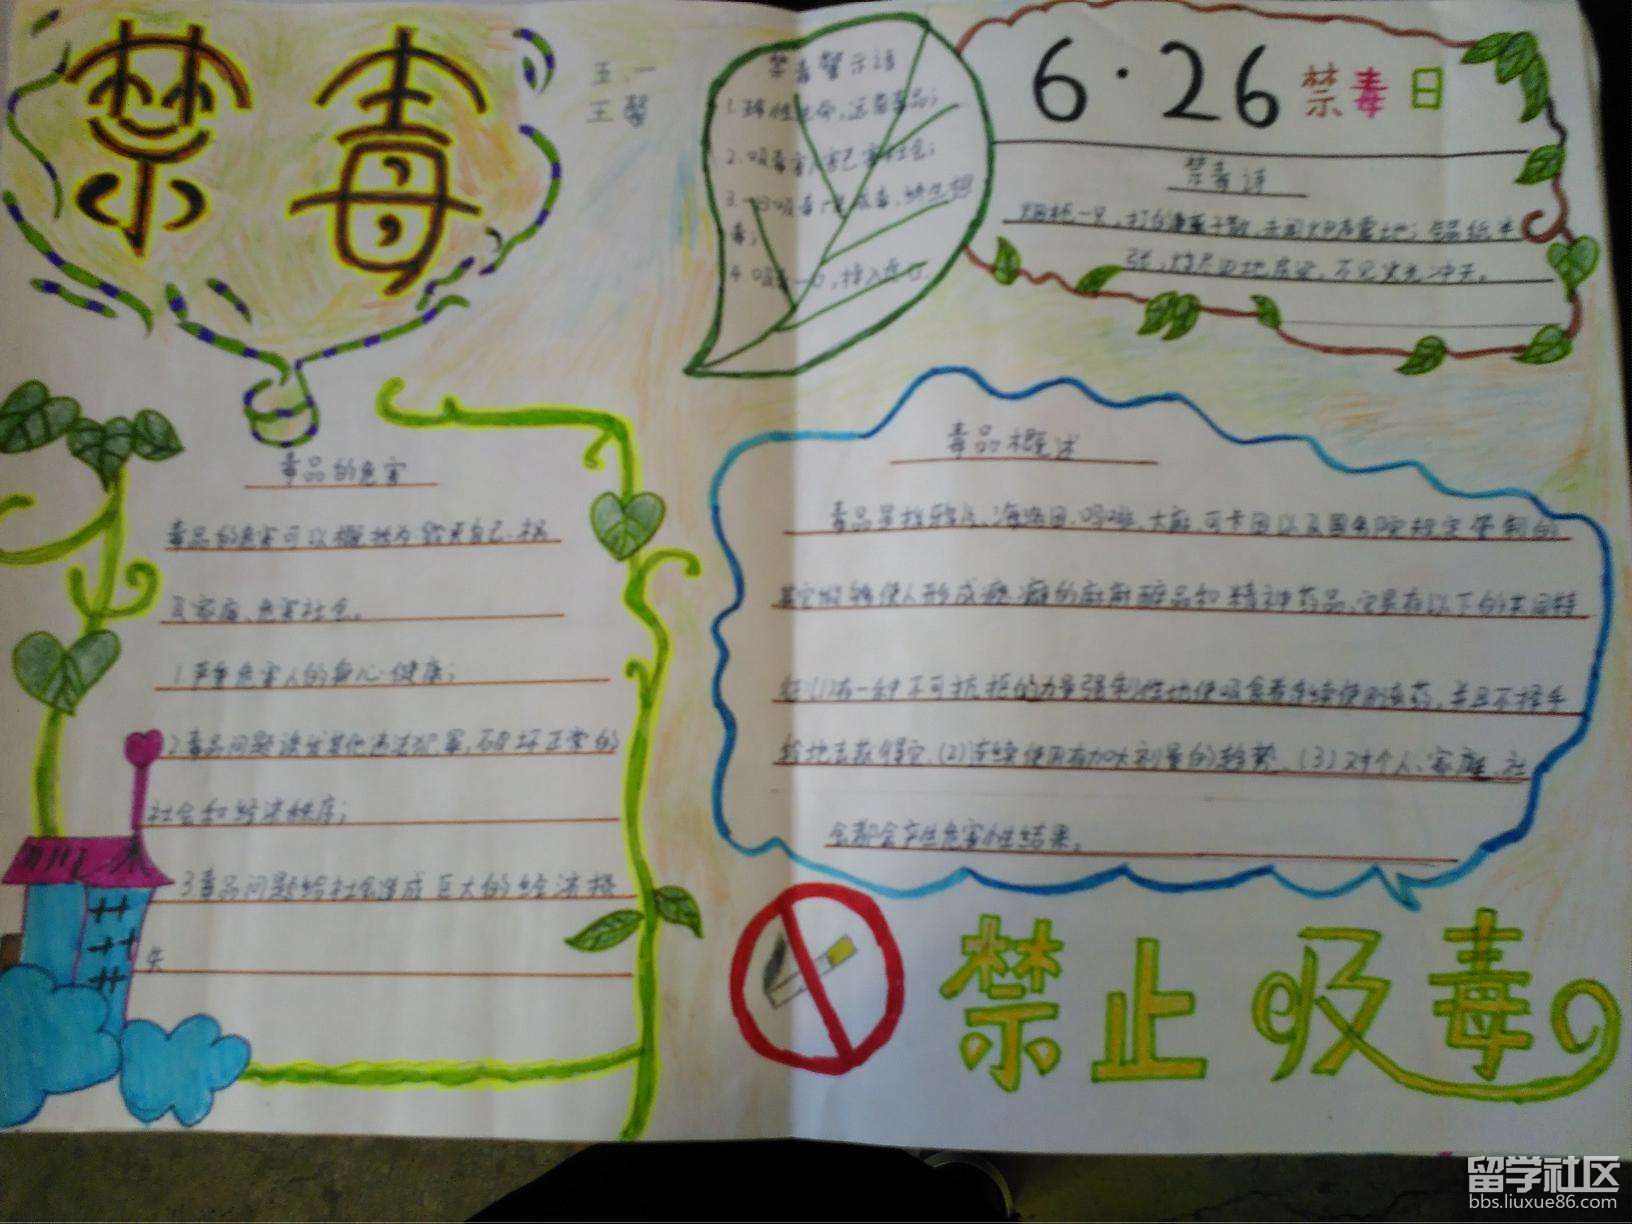 禁毒
五.一
王馨
禁毒警示语
1.珍惜生命,远离毒品;
2.吸毒害人害己害社会;
3.一日吸毒
毒;
4.吸毒一口,掉入虎口
6·26禁毒日
禁毒诗
烟枪一只,打
张,烧尽田地房定,不见火光冲天。
毒品的危害
毒品的危害可以概括为:毁灭自己、祸
及家庭、危害社会。
1严重危害人的身心健康;
2毒品问题诱发其他违法犯罪,破坏正常的
社会和经济秩序;
3毒品问题给社会造成巨大的经济损
失
毒品概述
毒品是指鸦片、海洛因、吗啡、大麻、可卡因以及国务院规定管制的
其它能够使人形成瘾癖的麻醉品和精神药品,它具有以下的共同特
征:(1)有一种不可抗拒的力量强制性地使吸食者连续使用该药,并且不择手
段地去获得它、(2)连续使用有加大剂量的趋势、(3)对个人、家庭、社
会都会产生危害性结果。
禁止吸毒
留学社区
bbs.liuxue86.com